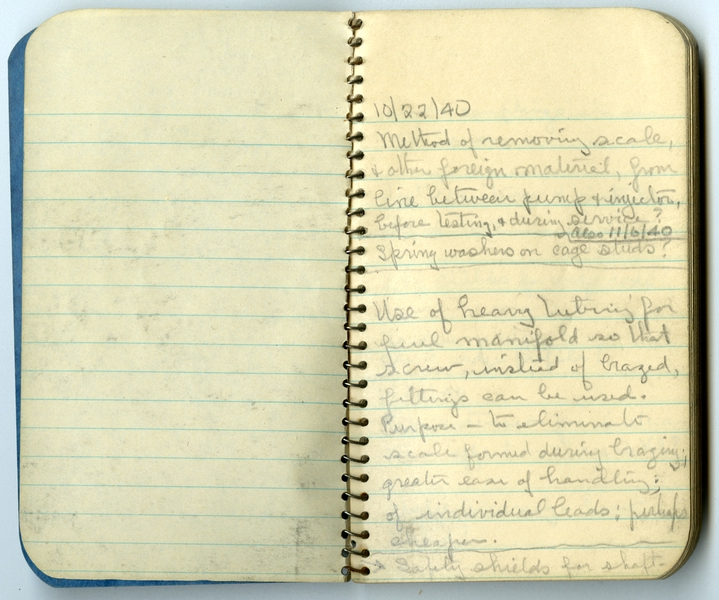 10/22/40
Method of removing scale,
& other foreign material, from
line between pump & injector,
before testing, & during service?
Also 11/6/40
Spring washers on cage studs?
Use of heavy tubing for
fuel manifold so that
screw, instead of brazed,
fittings can be used.
Purpose – to eliminate
scale formed during brazing;
greater ease of handling;
of individual leads; perhaps
cheaper.
Safety shields for shaft-